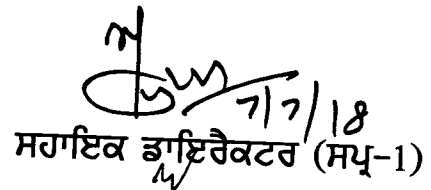 7/7/18
ਸਹਾਇਕ ਡਾਇਰੈਕਟਰ (ਸਪ੍ਰ-1)